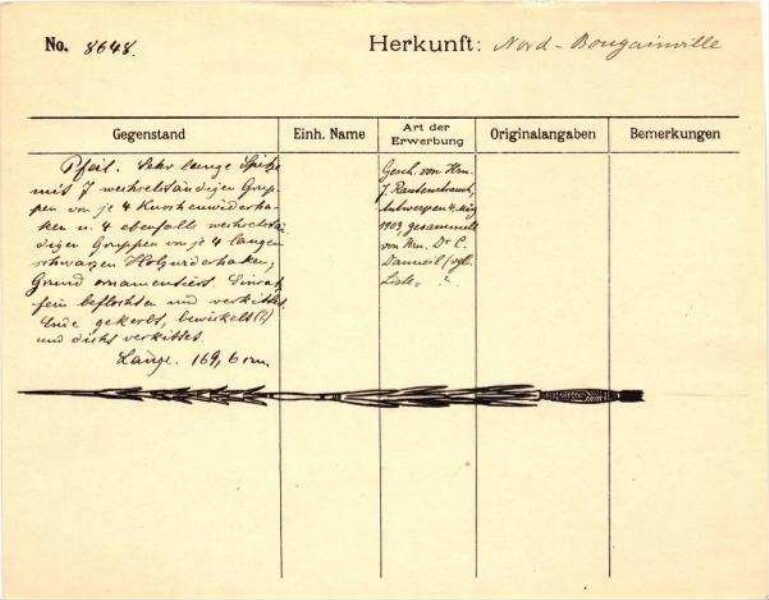 No. 8648.
Herkunft: Nord-Bougainville
Gegenstand
Einh. Name
Art der
Erwerbung
Originalangaben
Bemerkungen
Pfeil. Sehr lange Spitze
mit 7 wechselständigen Grup-
pen von je 4 Knochenwiderha-
ken u. 4 ebenfalls wechselstä-
digen Gruppen von je 4 langen
schwarzen Holzwiderhaken,
Grund ornamentiert. Einsatz
fein beflochten und verkittet.
Ende gekerbt, bewickelt(?)
und dicht verkittet.
Länge. 169,6 cm.
Gesch. von Hrn.
J. Rautenstrauch,
Antwerpen 4. März
1903, gesammelt
von Hrn. Dr C.
Danneil (vgl.
Liste